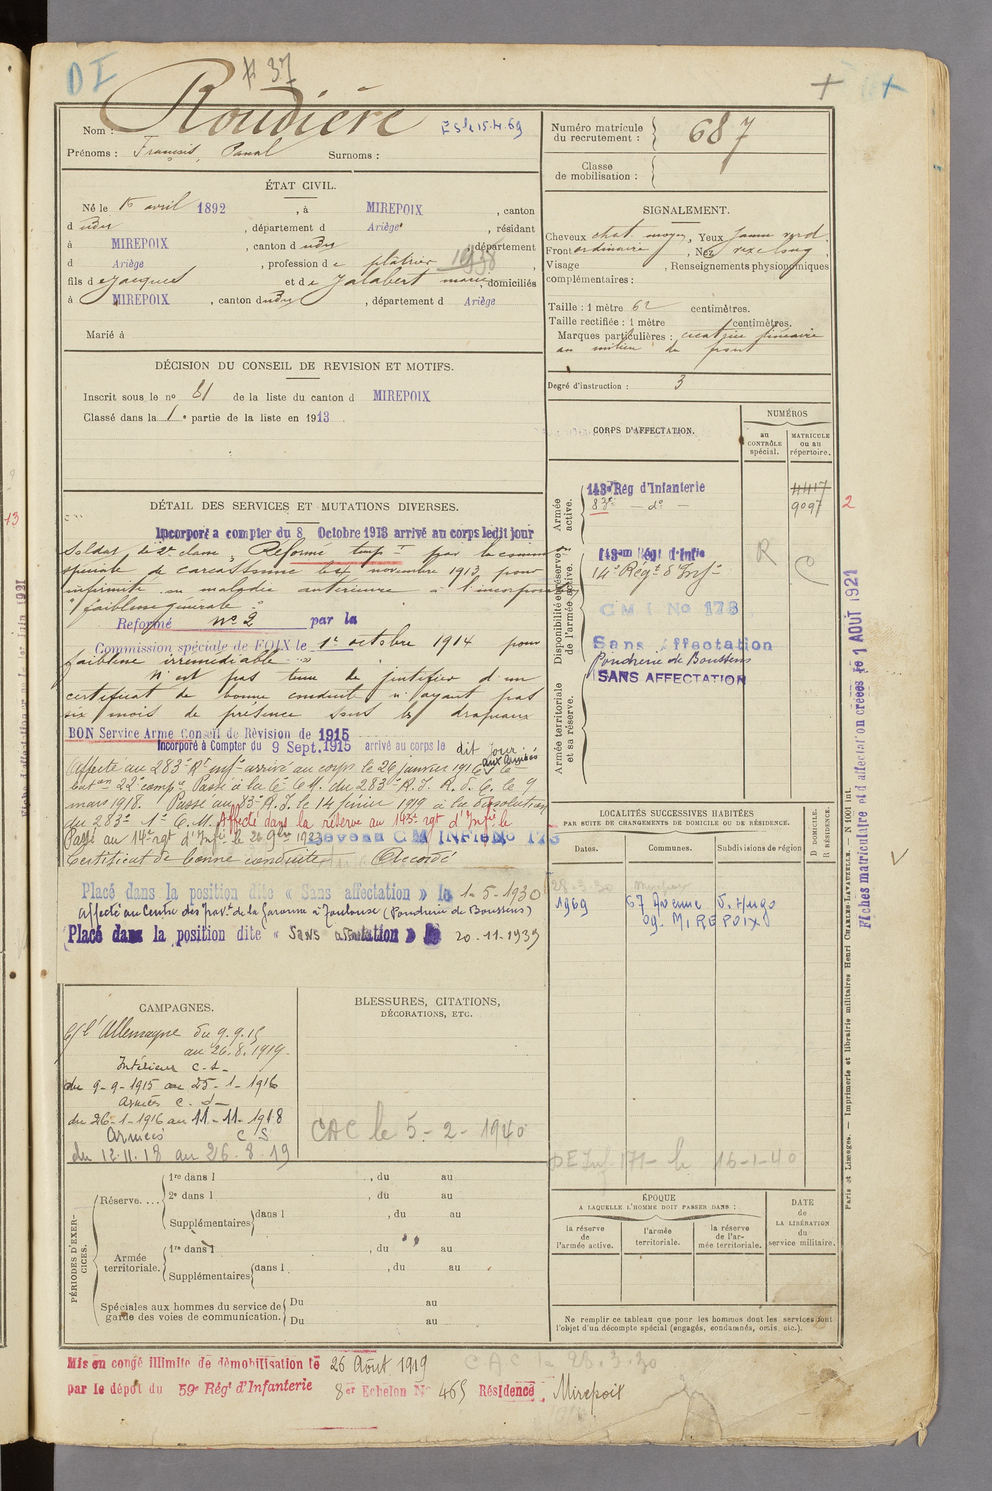 D I
# 37
Nom : Roudière
Prénoms : François, Paul Surnoms :
Numéro matricule du recrutement : 687
Classe de mobilisation :
ÉTAT CIVIL.
Né le avril 1892, à MIREPOIX, canton
d udit, département d Ariège, résidant
à MIREPOIX, canton d udit, département
d Ariège, profession de plâtrier 1938
fils de Jacques et de Jalabert Marie, domiciliés
à MIREPOIX, canton dudit, département d Ariège
Marié à
SIGNALEMENT.
Cheveux chat. moyen, Yeux jaune verd.
Front ordinaire, Nez rex long
Visage , Renseignements physionomiques
complémentaires :
Taille : 1 mètre 62 centimètres.
Taille rectifiée : 1 mètre centimètres.
Marques particulières : cicatrice linéaire
au milieu du front
Degré d'instruction : 3
DÉCISION DU CONSEIL DE REVISION ET MOTIFS.
Inscrit sous le no 81 de la liste du canton d MIREPOIX
Classé dans la 1e partie de la liste en 1913
CORPS D'AFFECTATION.
NUMÉROS
au CONTRÔLE spécial.
MATRICULE ou au répertoire.
Armée active.
143e Rég d'Infanterie 4417
83e — do — 9097
2
Disponibilité et réserve de l'armée active.
143em Régt d'Infie
14e Régt d'Infie
R
C M I No 173
Sans Affectation
Poudrerie de Boussens
SANS AFFECTATION
Armée territoriale et sa réserve.
DÉTAIL DES SERVICES ET MUTATIONS DIVERSES.
Incorporé a compter du 8 Octobre 1913 arrivé au corps ledit jour
Soldat de 2e classe, Réformé temp.t par la comm.on
spéciale de Carcassonne le novembre 1913 pour
infirmité ou maladie antérieure à l'incorporation
"faiblesse générale".
Reformé no 2 par la
Commission spéciale de FOIX le 1er octobre 1914 pour
faiblesse irrémédiable
N'est pas tenu de justifier d'un
certificat de bonne conduite n'ayant pas
six mois de présence sous les drapeaux
BON Service Armé Conseil de Révision de 1915
Incorporé à Compter du 9 Sept. 1915 arrivé au corps le dit jour
Affecté au 283e Rt infie arrivé au corps le 26 janvier 1916 aux armées
baton 22e compie Passé à la Cie C.M. du 283e R.I. le 9
mars 1918. Passé au 83e R.I. le 14 février 1919 à la dissolution
du 283e. Affecté dans la réserve au 143e rgt d'Infie le
Passé au 14e rgt d'Infie le 26 9bre 1923 C M INFIE No 173
Certificat de bonne conduite Accordé
Placé dans la position dite « Sans affectation » le 1-5-1930
Affecté au Centre des Travx de la Garonne à Toulouse (Poudrerie de Boussens)
Placé dans la position dite « Sans affectation » le 20-11-1939
LOCALITÉS SUCCESSIVES HABITÉES
PAR SUITE DE CHANGEMENTS DE DOMICILE OU DE RÉSIDENCE.
Dates. Communes. Subdivisions de région
D. DOMICILE.
R. RÉSIDENCE.
28-3-30 Mirepoix
1969 67 Avenue V. Hugo
09. MIREPOIX
CAMPAGNES.
C/ l'Allemagne du 9.9.15
au 26.8.1919.
Intérieur C. S.
du 9-9-1915 au 25-1-1916
Armées C. D.
du 26-1-1916 au 11-11-1918
Armées C. S.
du 12.11.18 au 26.8.19
BLESSURES, CITATIONS,
DÉCORATIONS, ETC.
CAC le 5-2-1940
DE Inf 171 le 16-1-40
PÉRIODES D'EXERCICES.
Réserve.... 1re dans l , du au
2e dans l , du au
Supplémentaires dans l , du au
Armée territoriale. 1re dans l , du au
Supplémentaires dans l , du au
Spéciales aux hommes du service de garde des voies de communication. Du au
Du au
ÉPOQUE
A LAQUELLE L'HOMME DOIT PASSER DANS :
la réserve de l'armée active.
l'armée territoriale.
la réserve de l'armée territoriale.
DATE de LA LIBÉRATION du service militaire.
Ne remplir ce tableau que pour les hommes dont les services font
l'objet d'un décompte spécial (engagés, condamnés, omis, etc.).
Mis en congé illimité de démobilisation le 26 Août 1919
C A C le 28.3.30
par le dépôt du 59e Régt d'Infanterie 8er Echelon No 465 Résidence Mirepoix
Paris et Limoges. — Imprimerie et librairie militaires Henri CHARLES-LAVAUZELLE. — N 1001 int.
Fiches matriculaire et d'affectation créées le 1 AOUT 1921